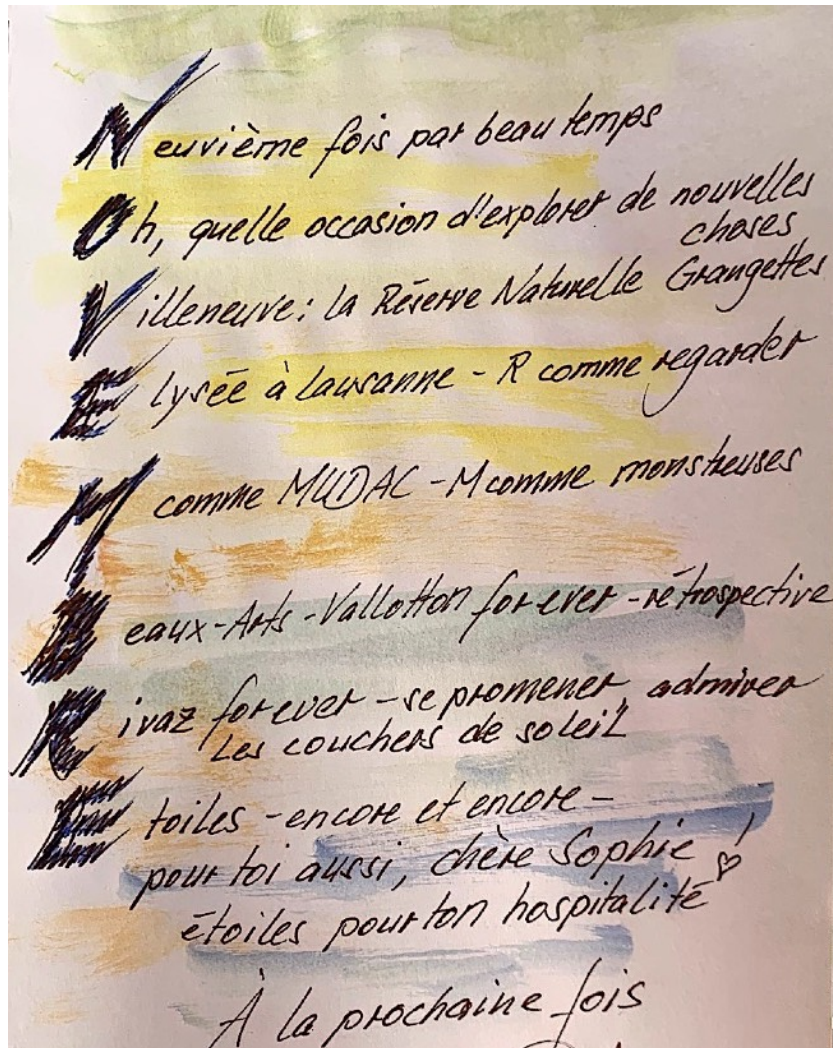 Neuvième fois par beau temps
Oh, quelle occasion d'explorer de nouvelles
choses
Villeneuve: la Réserve Naturelle Grangettes
Elysée à Lausanne - R comme regarder
M comme MUDAC - M comme monstreuses
Beaux-Arts - Vallotton forever - rétrospective
Rivaz forever - se promener, admirer
les couchers de soleil
Etoiles - encore et encore -
pour toi aussi, chère Sophie !
étoiles pour ton hospitalité
À la prochaine fois